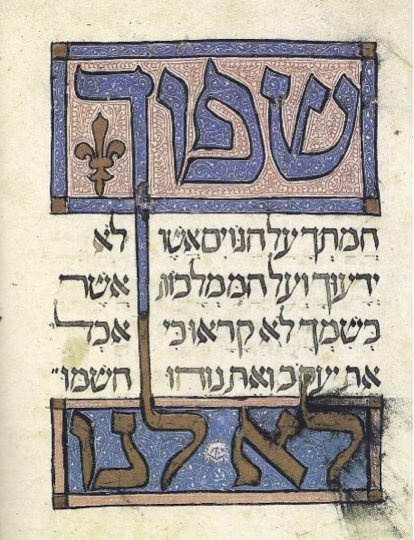 שפוך
חמתך על הגוים אשר לא
ידעוך ועל הממלכות אשר
בשמך לא קראו כי אכל
את יעקב ואת נוהו השמו
לא לנו